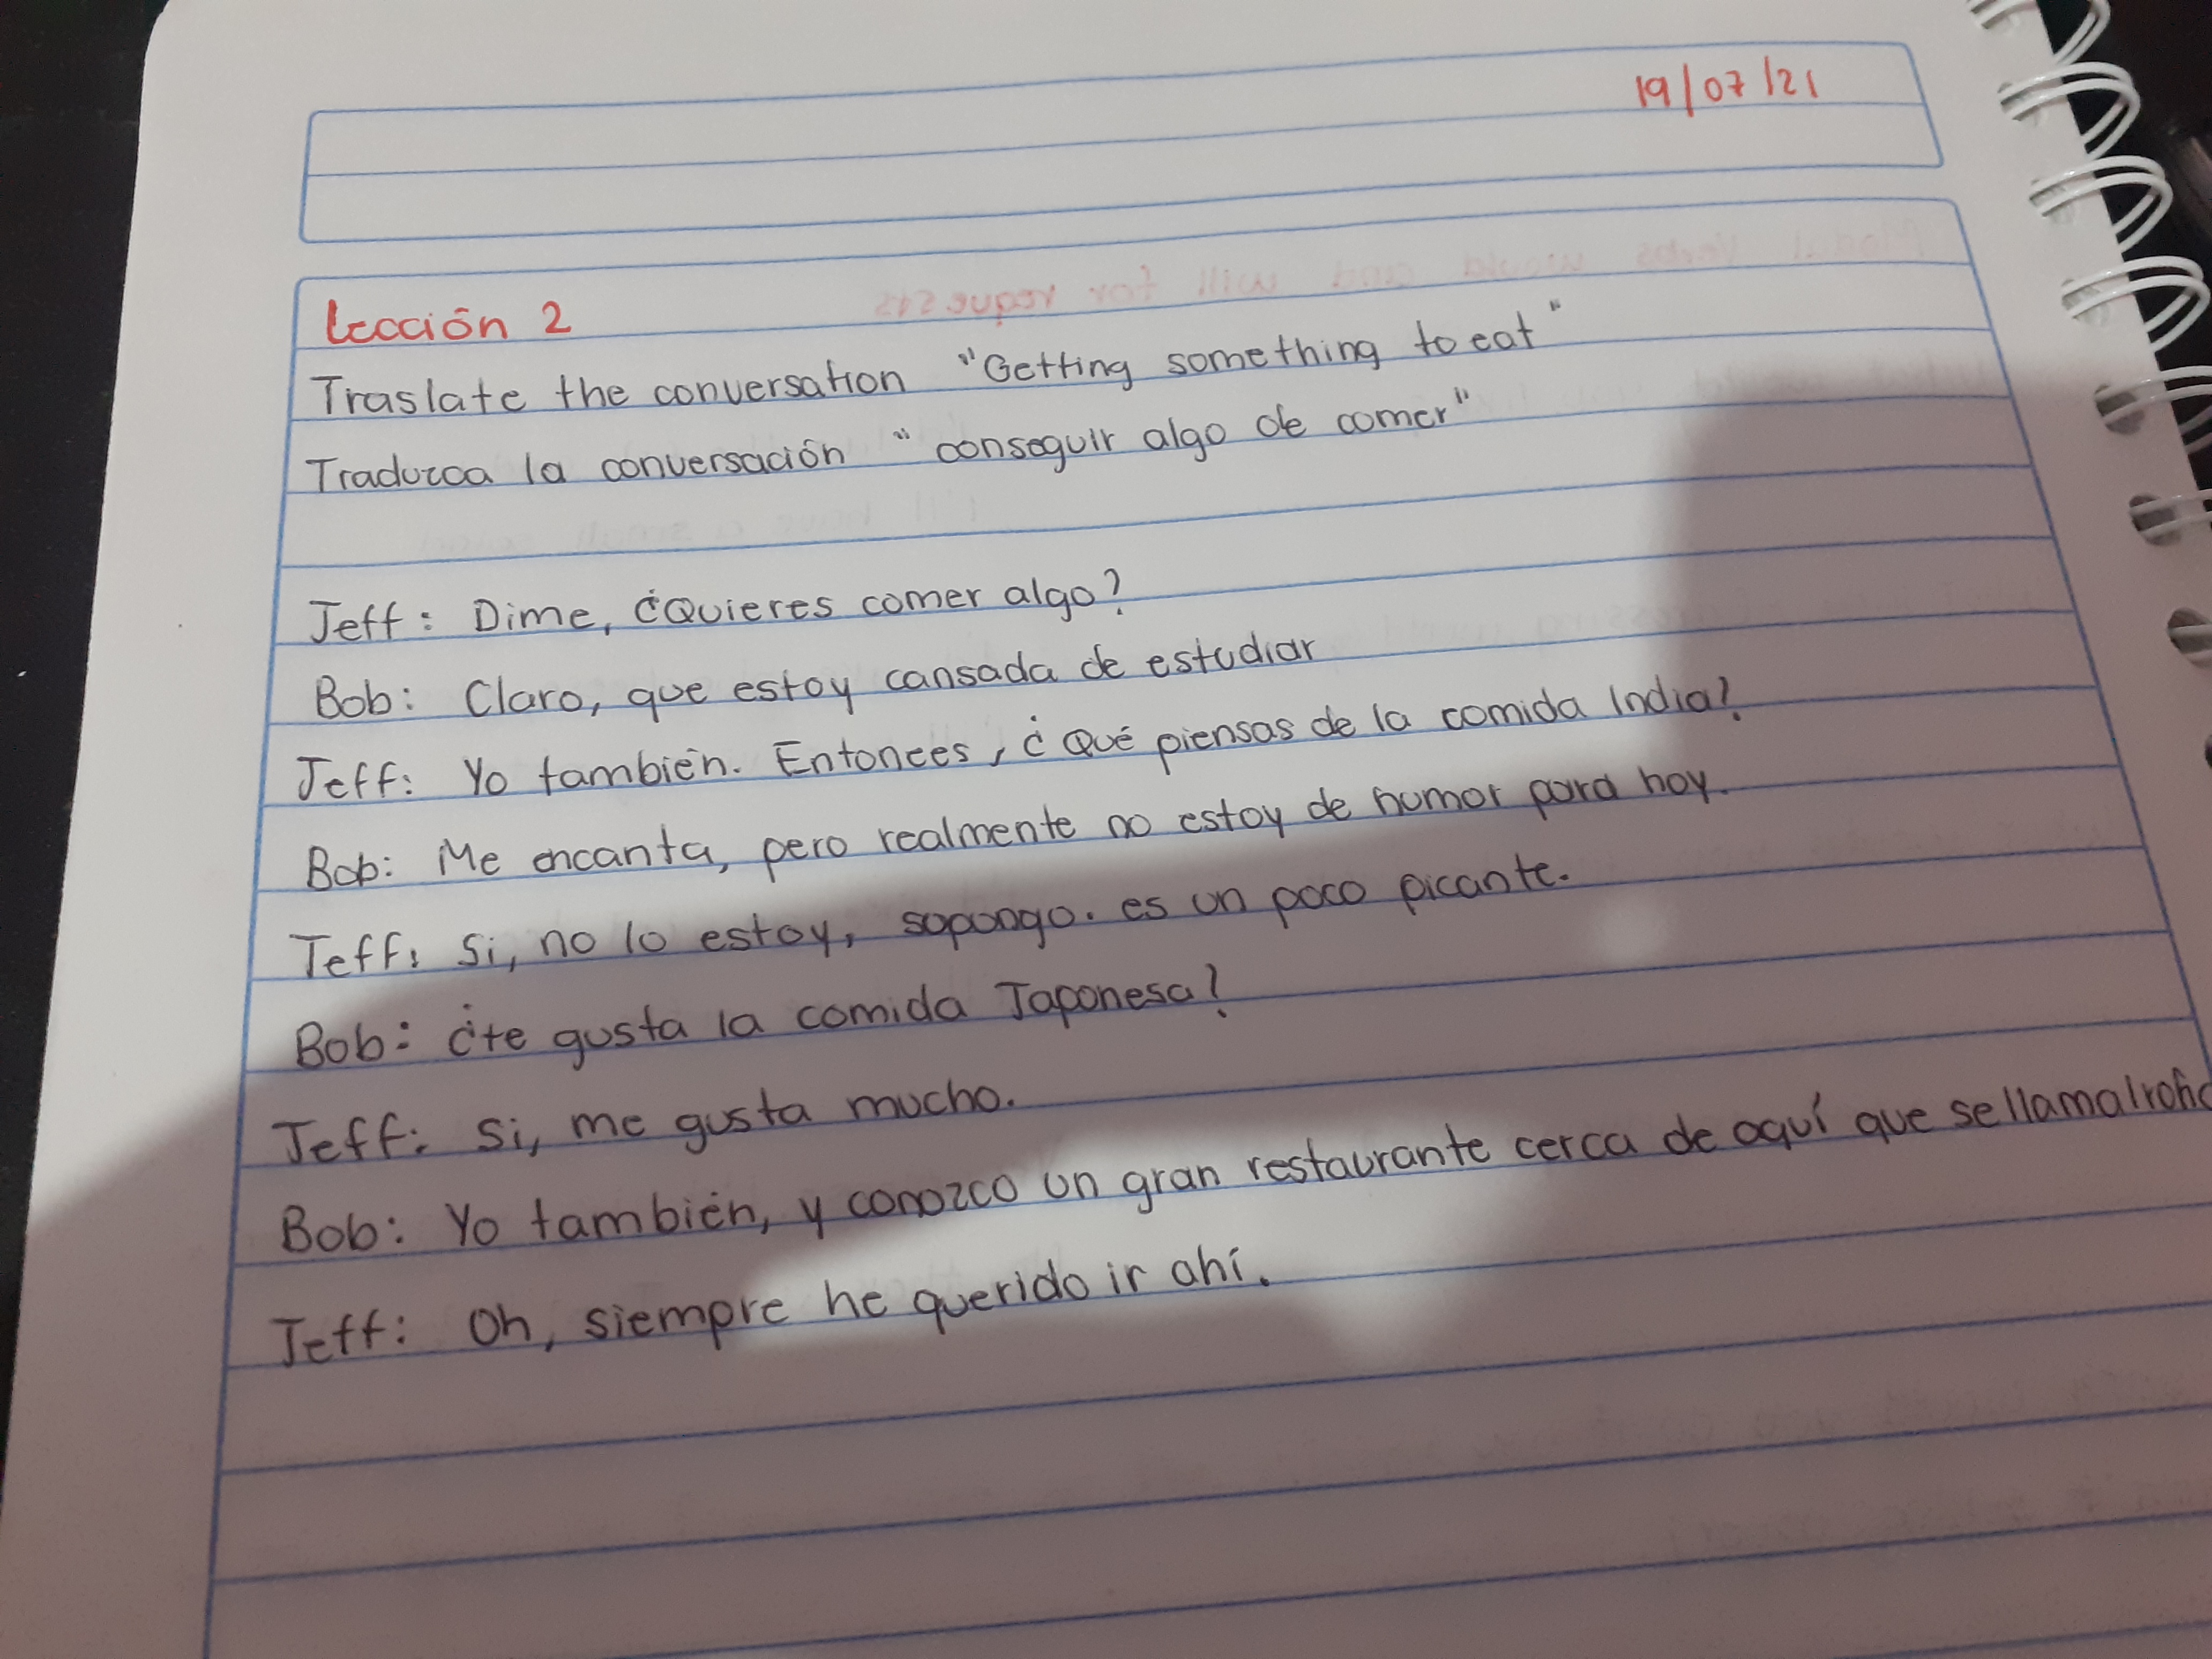 19/07/21
Lección 2
Traslate the conversation "Getting something to eat"
Traduzca la conversación "conseguir algo de comer"
Jeff: Dime, ¿Quieres comer algo?
Bob: Claro, que estoy cansada de estudiar
Jeff: Yo también. Entonces, ¿Qué piensas de la comida India?
Bob: Me encanta, pero realmente no estoy de humor para hoy.
Jeff: Si, no lo estoy, sopongo. es un poco picante.
Bob: ¿te gusta la comida Japonesa?
Jeff: Si, me gusta mucho.
Bob: Yo también, y conozco un gran restaurante cerca de aquí que se llama
Jeff: Oh, siempre he querido ir ahí.